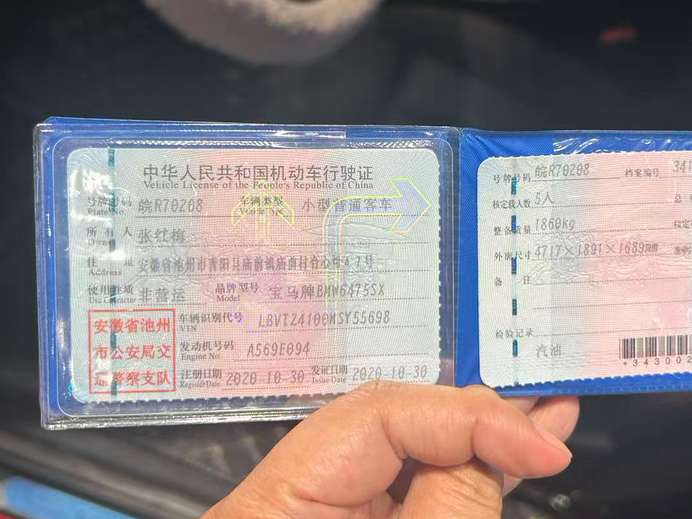 中华人民共和国机动车行驶证
Vehicle License of the People's Republic of China
号牌号码 皖R70208 车辆类型 小型普通客车
Plate No. Vehicle Type
所有人 张红梅
Owner
住址 安徽省池州市青阳县庙前镇庙前村合心组47号
Address
使用性质 非营运 品牌型号 宝马牌BMW6475SX
Use Character Model
安徽省池州
市公安局交
通警察支队
车辆识别代号 LBVTZ4100MSY55698
VIN
发动机号码 A569E094
Engine No.
注册日期 2020-10-30 发证日期 2020-10-30
Register Date Issue Date
号牌号码 皖R70208 档案编号 341
核定载人数 5人 总
整备质量 1860kg
外廓尺寸 4717×1891×1689
备注
检验记录
汽油
*343002